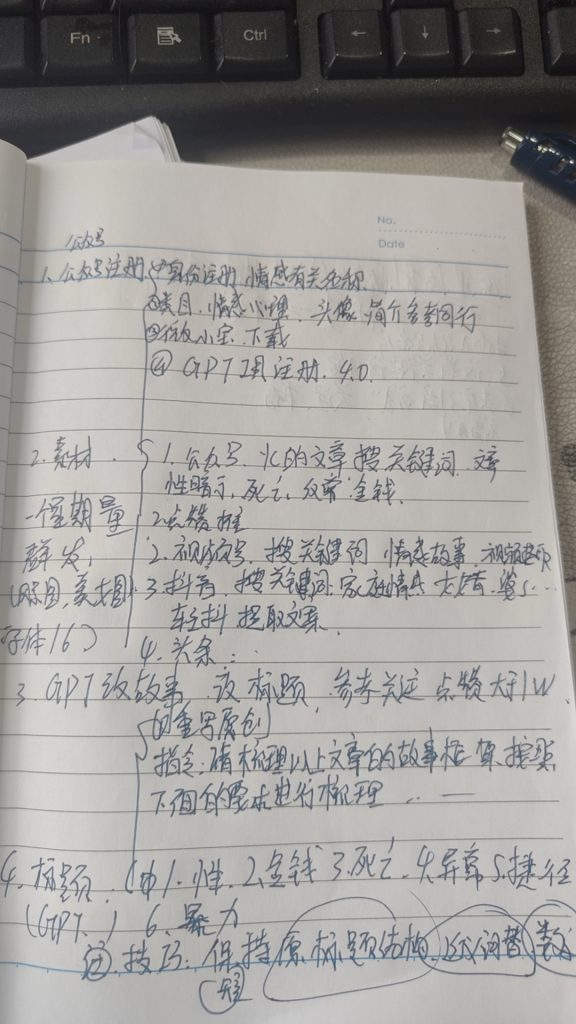 Fn
Ctrl
← ↓ →
No.
Date
公众号
1. 公众号注册 ①身份注册 情感有关名称
②类目. 情感心理. 头像 简介参考同行
下载
④ GPT 注册. 4.0.
2. 素材. 1. 公众号. 的文章 搜关键词.
性暗示, 死亡, 金钱.
一个星期量 2. 点赞 推
群发, 2. 视频号, 搜关键词 情感故事
3. 抖音, 搜关键词 家庭情感
字体16) 轻抖 提取文案
4. 头条...
3. GPT改故事 改标题, 参考关注 点赞大于1W
重写原创
指令: 请梳理以上文章的故事框架, 按照
下面的要求进行梳理 ... —
4. 标题. 1. 性. 2. 金钱 3. 死亡. 4. 异常 5. 捷径
(GPT.) 6. 暴力
技巧: 保持原标题结构, 近义词替